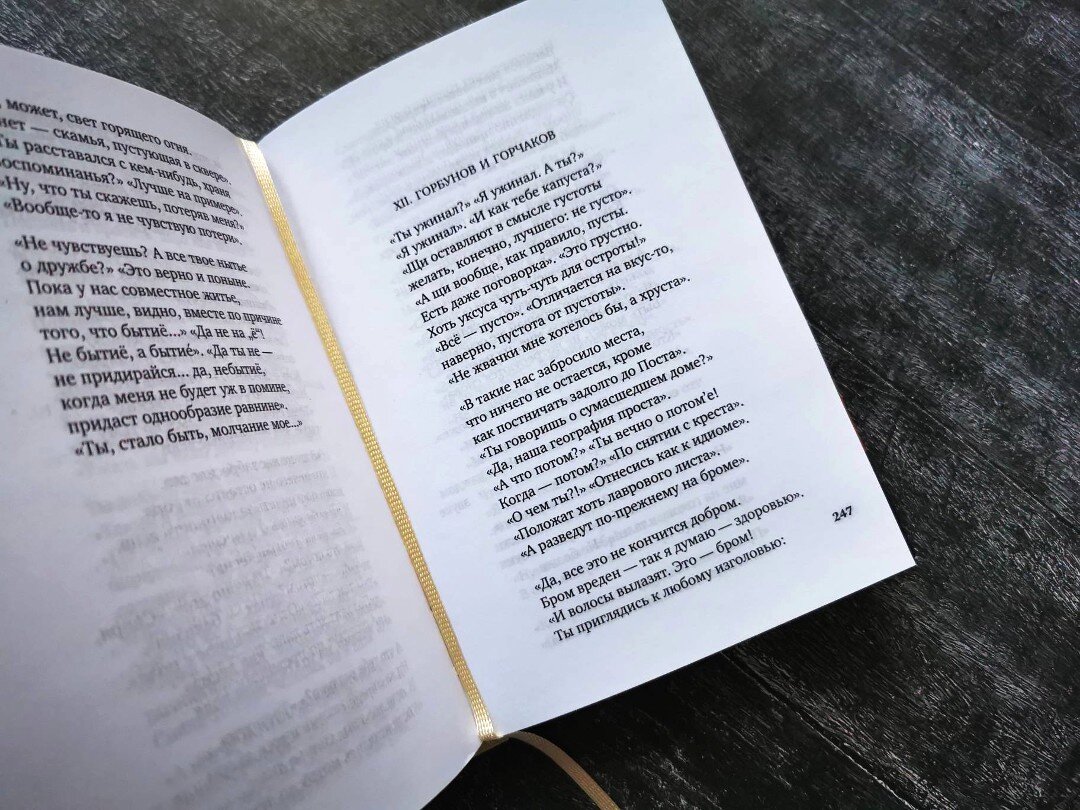 может, свет горящего огня.
нет — скамья, пустующая в сквере»
Ты расставался с кем-нибудь, храня
воспоминанья?» «Лучше на примере».
«Ну, что ты скажешь, потеряв меня?»
«Вообще-то я не чувствую потери».
«Не чувствуешь? А все твое нытье
о дружбе?» «Это верно и поныне.
Пока у нас совместное житье,
нам лучше, видно, вместе по причине
того, что бытиё...» «Да не на „ё“!
Не бытиё, а бытие́». «Да ты не —
не придирайся... да, небытиё,
когда меня не будет уж в помине,
придаст однообразие равнине».
«Ты, стало быть, молчание мое...»
XII. ГОРБУНОВ И ГОРЧАКОВ
«Ты ужинал?» «Я ужинал. А ты?»
«Я ужинал». «И как тебе капуста?»
«Щи оставляют в смысле густоты
желать, конечно, лучшего: не густо».
«А щи вообще, как правило, пусты.
Есть даже поговорка». «Это грустно.
Хоть уксуса чуть-чуть для остроты!»
«Всё — пусто». «Отличается на вкус-то,
наверно, пустота от пустоты».
«Не жвачки мне хотелось бы, а хруста».
«В такие нас забросило места,
что ничего не остается, кроме
как постничать задолго до Поста».
«Ты говоришь о сумасшедшем доме?»
«Да, наша география проста».
«А что потом?» «Ты вечно о потом'е!
Когда — потом?» «По снятии с креста».
«О чем ты?!» «Отнесись как к идиоме».
«Положат хоть лаврового листа».
«А разведут по-прежнему на броме».
«Да, все это не кончится добром.
Бром вреден — так я думаю — здоровью».
«И волосы вылазят. Это — бром!
Ты приглядись к любому изголовью:
247